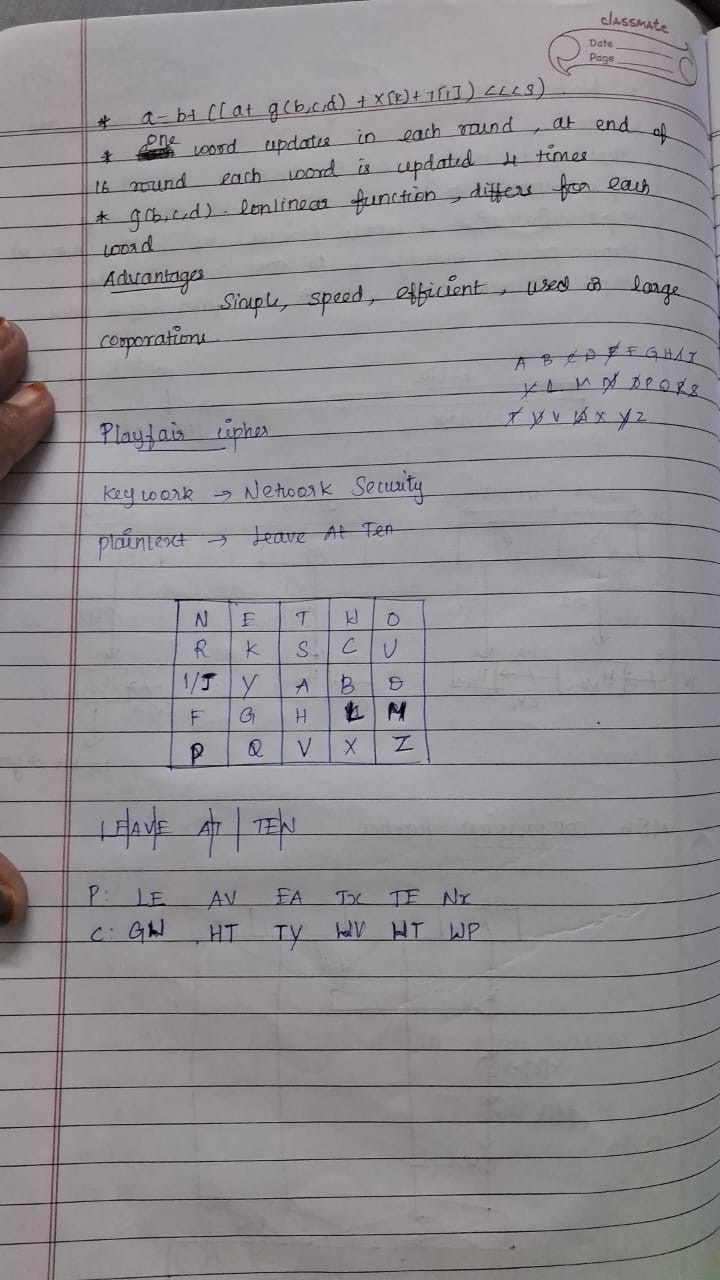 classmate
Date
Page
* a = b + ((a + g(b,c,d) + x[k] + T[i]) <<< s)
* one word updates in each round, at end of
16 round each word is updated 4 times
* g(b,c,d). lonlinear function, differs for each
word
Advantages
Simple, speed, efficient, used in large
corporations.
A B C D E F G H I J
K L M N O P Q R S
T U V W X Y Z
Playfair cipher
Key work → Network Security
plaintext → Leave At Ten
N E T W O
R K S C U
I/J Y A B D
F G H L M
P Q V X Z
LE/AV/E AT/ | TE/N
P: LE AV EA Tx TE Nx
C: GW HT TY WV WT WP